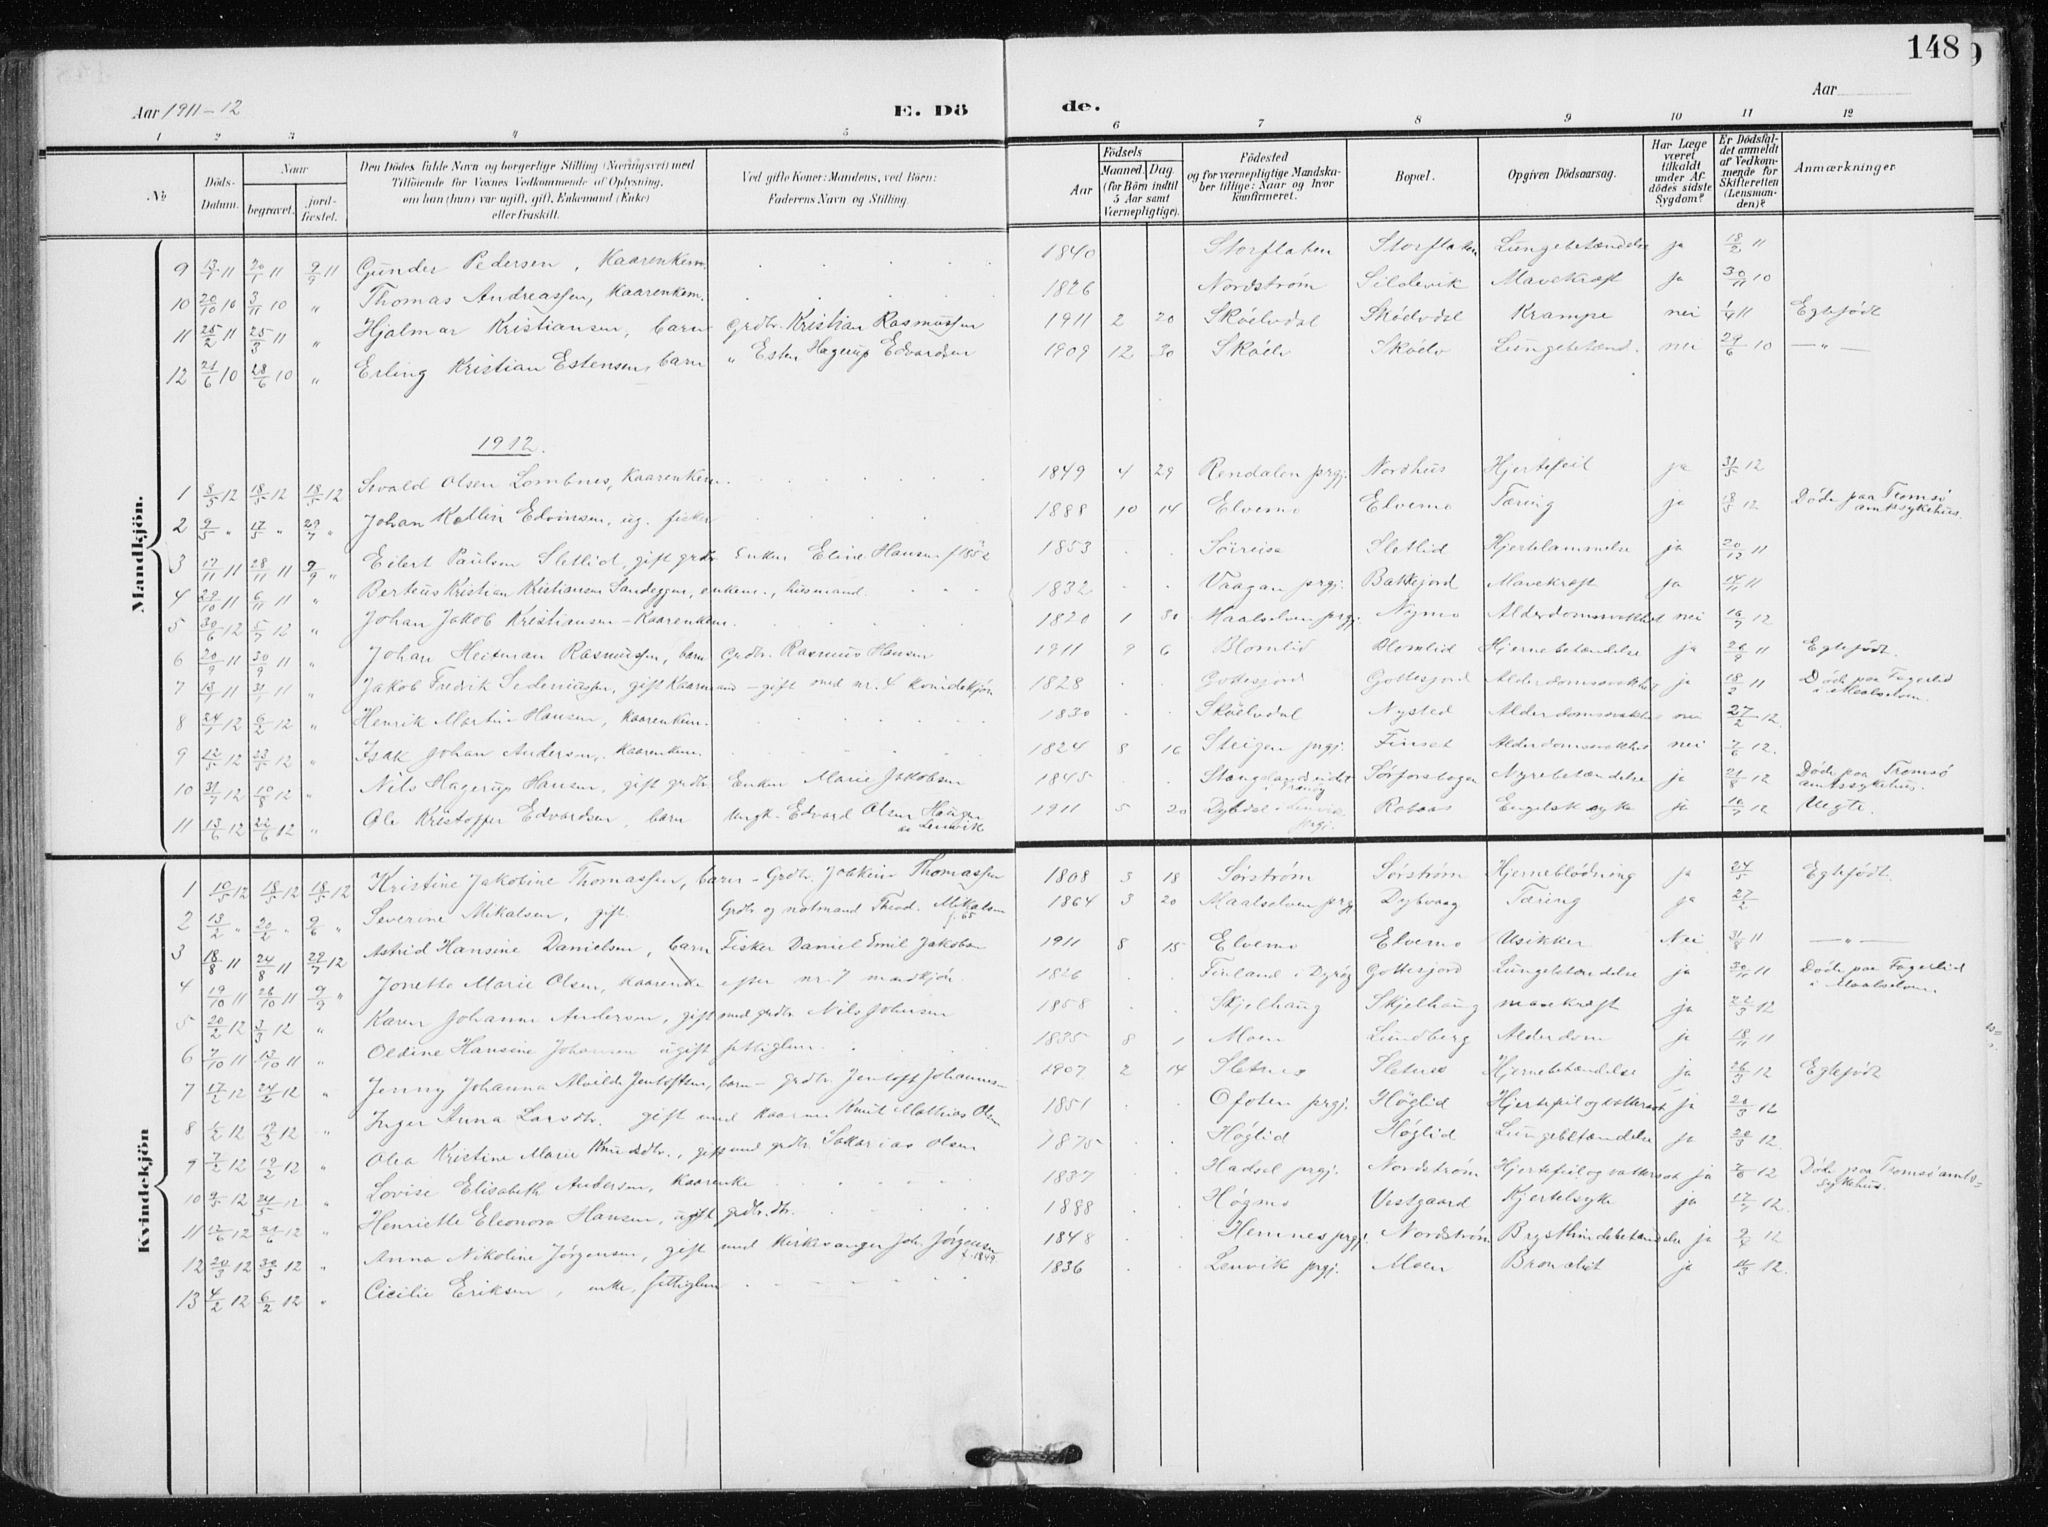 148
Aar 1911-12 E. Dö de. Aar
1 2 3 4 5 6 7 8 9 10 11 12
№ Döds-Datum. Naar begravet. jord-fæstet. Den Dödes fulde Navn og borgerlige Stilling (Næringsvei) med Tilföiende for Voxnes Vedkommende af Oplysning, om han (hun) var ugift, gift, Enkemand (Enke) eller fraskilt. Ved gifte Koner: Mandens, ved Börn: Faderens Navn og Stilling. Födsels Aar Maaned. Dag. (for Börn indtil 5 Aar samt Værnepligtige). Födested og for værnepligtige Mandskaber tillige: Naar og hvor konfirmeret. Bopæl. Opgiven Dödsaarsag. Har Læge været tilkaldt under Afdödes sidste Sygdom? Er Dödsfaldet anmeldt af Vedkommende for Skifteretten (Lensmanden)? Anmærkninger
Mandkjön.
9 11 11 9/9 11 Gunder Pedersen, Kaarenkem. 1840 Storflaten Storflaten Lungebetændelse ja 18/2 11
10 20/10 10 3/11 10 " Thomas Andreassen, Kaarenkem. 1826 Nordstrøm Sildevik Mavekræft ja 30/11 10
11 25/2 11 25/3 11 " Hjalmar Kristiansen, barn Grdbr. Kristian Rasmussen 1911 2 20 Skøelvdal Skøelvdal Krampe nei 1/4 11 Egtefødt
12 21/6 10 28/6 10 " Erling Kristian Estensen, barn " Esten Hagerup Edvardsen 1909 12 30 Skøelv Skøelv Lungebetænd. nei 29/6 10 — " —
1912.
1 8/5 12 18/5 12 18/5 12 Sevald Olsen Lombnes, Kaarenkem 1849 4 29 Rendalen prgj. Nordhus Hjertefeil ja 31/5 12
2 9/5 " 17/5 " 29/7 " Johan Edvinsen, ug. fisker 1888 10 14 Elvemo Elvemo Tæring ja 18/5 12 Døde paa Tromsø amtssykehus.
3 17/11 11 28/11 11 9/9 " Eilert Paulsen Sletlid, gift grdbr. Enken Eline Hansen f 1852 1853 Sørreisa Sletlid Hjertelammelse ja 20/12 11
4 29/10 11 6/11 11 " Berteus Kristian Kristiansen Sandeggen, enkem., husmand 1832 Vaagan prgj. Bakkejord Mavekræft ja 14/11 11
5 30/6 12 5/7 12 " Johan Jakob Kristiansen - Kaarenkem. 1820 1 30 Maalselven prgj. Nymo Alderdomssvakhet nei 16/7 12
6 20/9 11 30/9 11 " Johan Heitman Rasmussen, barn Grdbr. Rasmus Hansen 1911 9 6 Blomlid Blomlid Hjernebetændelse ja 26/9 11 Egtefødt.
7 13/1 11 31/1 11 " Jakob Fredrik Sedeniussen, gift Kaarmand - gift med nr. 4 kvindekjøn 1828 Gottesjord Gottesjord Alderdomssvakhet ja 18/2 11 Døde paa Fagerlid i Maalselven.
8 24/1 12 6/2 12 " Henrik Martin Hansen, Kaarenkem. 1830 Skøelvdal Nysted Alderdomssvakhet nei 27/2 12
9 12/5 12 23/5 12 " Isak Johan Andersen, Kaarenkem. 1824 8 16 Steigen prgj. Finset Alderdomssvakhet nei 7/6 12.
10 31/7 12 10/8 12 " Nils Hagerup Hansen, gift grdbr. Enken Marie Jakobsen 1845 Stangelandseidet i Tranøy Sørforsbogen Nyrebetændelse ja 21/8 12 Døde paa Tromsø amtssykehus.
11 13/6 12 22/6 12 " Ole Kristoffer Edvardsen, barn Ungk. Edvard Olsen Haugen av Lenvik 1911 5 20 Dybdal i Lenvik prgj. Rotaas Engelsk syke ja 10/7 12 Uegte.
Kvindekjön
1 10/5 12 18/5 12 18/5 12 Kristine Jakobine Thomassen, barn - Grdbr. Thomassen 1808 3 18 Sørstrøm Sørstrøm Hjerneblødning ja 24/5 Egtefødt.
2 13/2 " 20/2 " 9/6 " Severine Mikalsen, gift. Grdbr og notmand Theod. Mikalsen f. 65 1864 3 20 Maalselven prgj. Dybvaag Tæring ja 27/2
3 18/8 11 24/8 11 29/7 12 Astrid Hansine Danielsen, barn Fisker Daniel Emil Jakobsen 1911 8 15 Elvemo Elvemo Usikker Nei 31/8 11 — " —
4 19/10 11 26/10 11 9/9 " Jonette Marie Olsen, Kaarenke efter nr. 7 mandkjön 1826 Finland i Dyrøy Gottesjord Lungebetændelse ja 30/10 11 Døde paa Fagerlid i Maalselven.
5 20/2 12 3/3 12 " Karen Johanne Andersen, gift med grdbr Nils Johnsen 1858 Skjelhaug Skjelhaug mavekræft ja 22/3 12
6 7/10 11 13/10 11 " Oldine Hansine Johansen ugift fattiglem 1835 8 1 Moen Lundberg Alderdom ja 18/11 11
7 17/2 12 24/2 12 " Jenny Johanna Alvilde Jentoftsen, barn - grdbr. Jentoft Johannes- 1907 2 14 Sletnes Sletnes Hjernebetændelse ja 26/3 12 Egtefødt
8 12 12 " Inger Anna Larsdtr. gift med kaarm. Knut Mathias Olsen 1851 Ofoten prgj. Høglid Hjertefeil og vattersot ja 20/3 12
9 7/2 12 19/2 12 " Olea Kristine Marie Knudsdtr., gift med grdbr Sakarias Olsen 1875 Høglid Høglid Lungebetændelse ja 20/3 12.
10 9/5 12 24/5 12 " Lovise Elisabeth Andersen, Kaarenke 1837 Hadsel prgj. Nordstrøm Hjertefeil og vattersot ja 7/6 12 Døde paa Tromsø amts-sykehus.
11 12 12 " Henriette Eleonora Hansen, ugift grdbr.dtr. 1888 Høgmo Vestgaard Kjertelsyke ja 17/7 12.
12 20/3 12 30/3 12 " Anna Nikoline Jørgensen, gift med kirkesanger Joh. Jørgensen f. 1849 1848 Hemnes prgj. Nordstrøm Brysthindebetændelse ja 9/4 12
13 4/2 12 6/2 12 " Cicilie Eriksen, enke, fattiglem 1836 Lenvik prgj. Moen Bronchit ja 12.